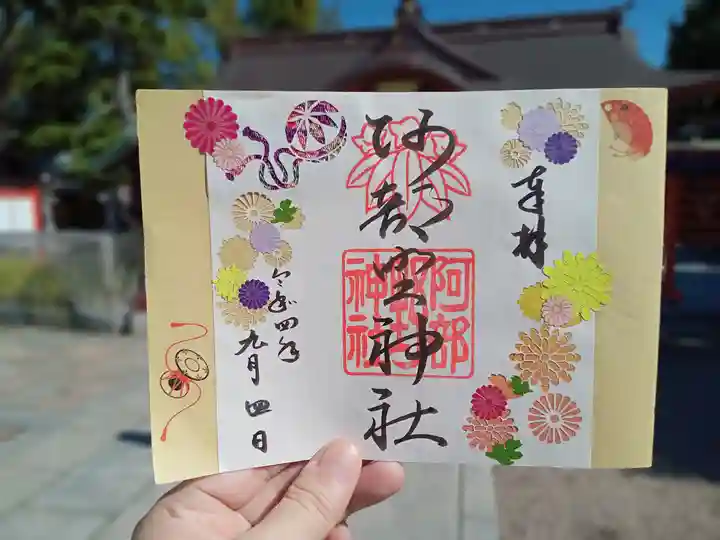 奉拝
阿部野神社
阿部
神社
令和四年
九月四日